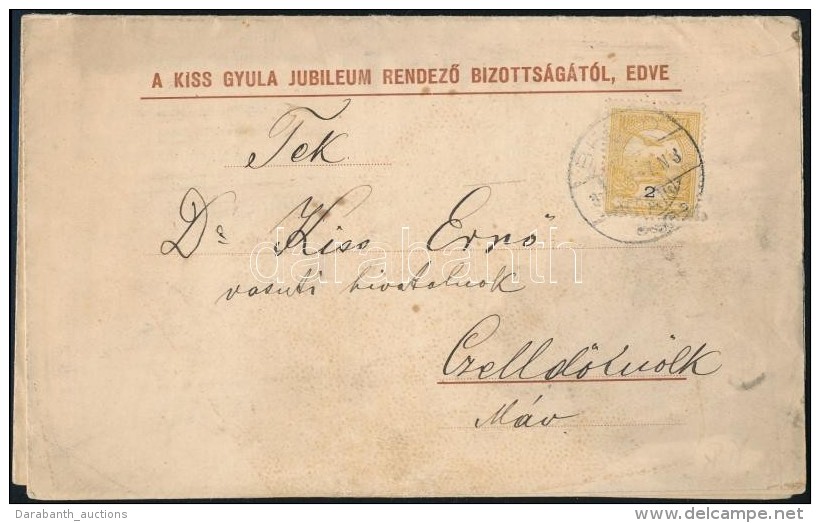 A KISS GYULA JUBILEUM RENDEZŐ BIZOTTSÁGÁTÓL, EDVE
Tek
2
Dr Kiss Ernő
darabanth
vasuti hivatalnok
Czelldömölk
Máv
Darabanth_auctions
delcampe.net